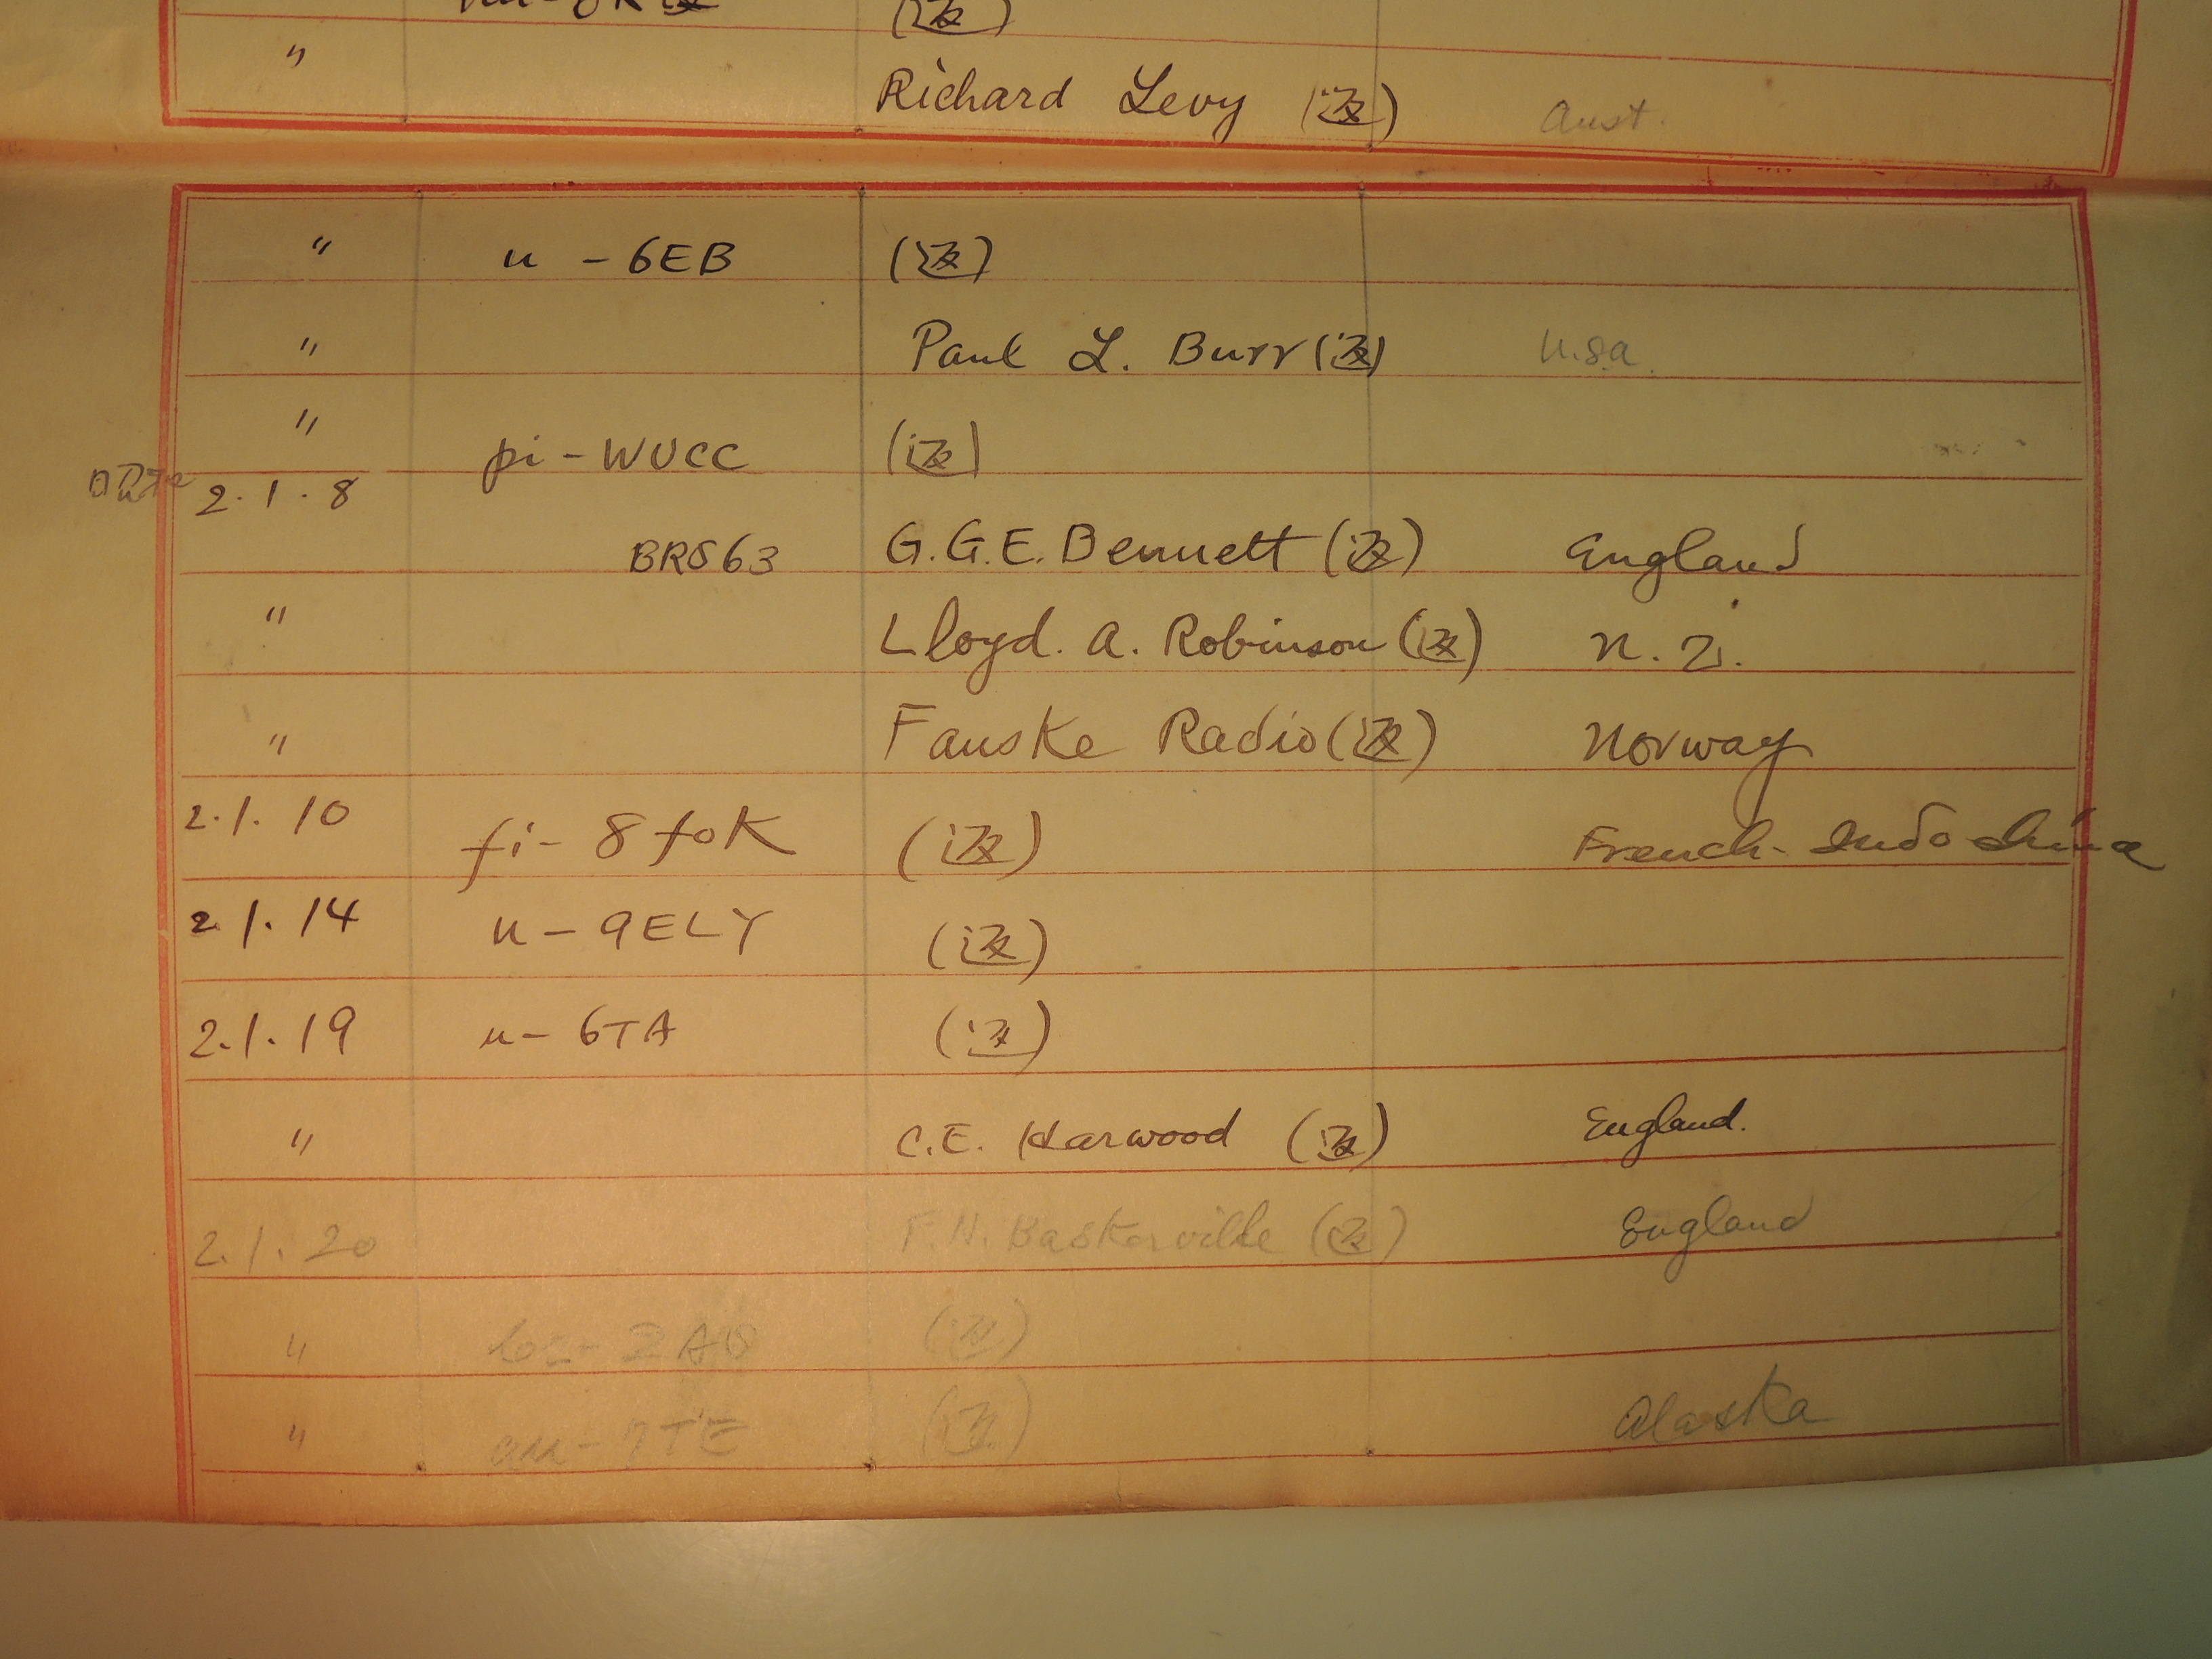 (返)
〃 Richard Levy (返) Aust.
〃 u - 6EB (返)
〃 Paul L. Burr (返) U.S.a.
〃 pi - WUCC (返)
2.1.8 BRS63 G.G.E. Bennett (返) England
〃 Lloyd. A. Robinson (返) N.Z.
〃 Fauske Radio (返) Norway
2.1.10 fi - 8foK (返) French-Indo China
2.1.14 u - 9ELY (返)
2.1.19 u - 6TA (返)
〃 C.E. Harwood (返) England.
2.1.20 F.N. Baskerville (返) England
〃 (返)
〃 au - 7TE (返) Alaska